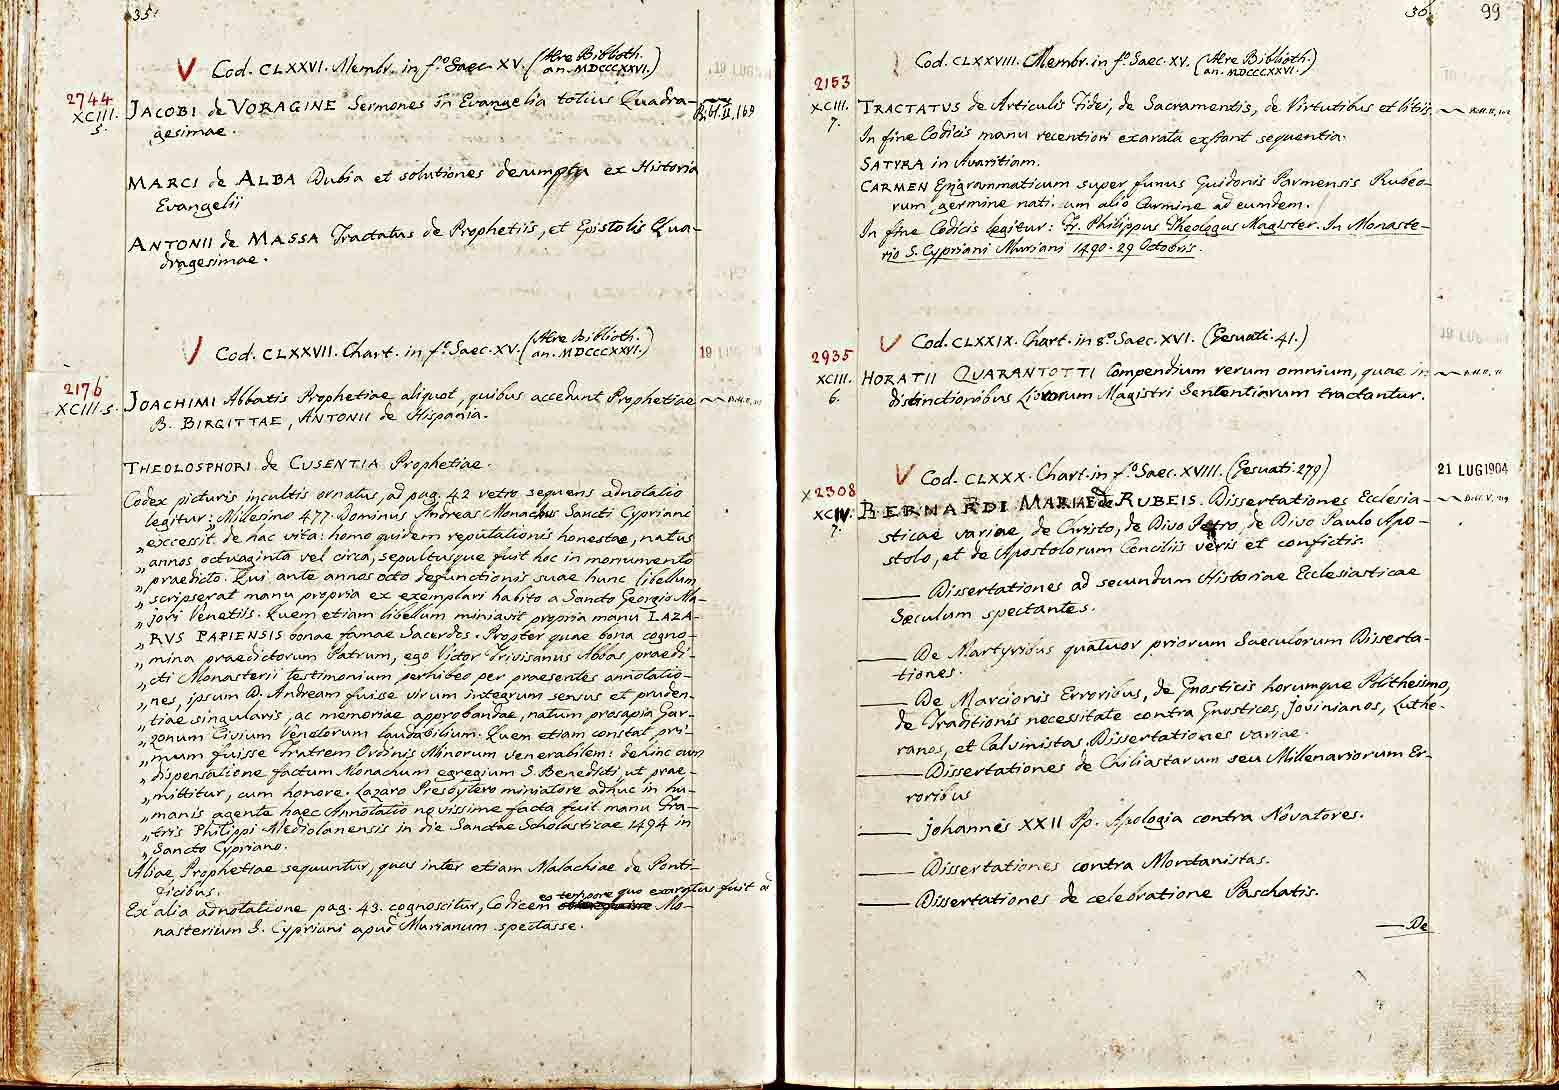 35.
V Cod. CLXXVI. Membr. in f.º Saec. XV. (Alre Biblioth. an. MDCCCXXVI.)
2744
XCIII.
5.
JACOBI de VORAGINE Sermones in Evangelia totius Quadra-
gesimae.
Bibl. II, 169
MARCI de ALBA Dubia et solutiones desumpta ex Historia
Evangelii
ANTONII de MASSA Tractatus de Prophetiis, et Epistolis Qua-
dragesimae.
V Cod. CLXXVII. Chart. in f.º Saec. XV. (Alre Biblioth. an. MDCCCXXVI.)
19 LUG
2176
XCIII. 5.
JOACHIMI Abbatis Prophetiae aliquot, quibus accedunt Prophetiae
B. BIRGITTAE, ANTONII de Hispania.
THEOLOSPHORI de CUSENTIA Prophetiae.
Codex picturis incultis ornatus, ad pag. 42 retro sequens adnotatio
legitur: „Millesimo 477. Dominus Andreas Monachus Sancti Cypriani
„excessit de hac vita: homo quidem reputationis honestae, natus
„annos octuaginta vel circa, sepultusque fuit hoc in monumento
„praedicto. Qui ante annos octo defunctionis suae hunc libellum
„scripserat manu propria ex exemplari habito a Sancto Georgio Ma-
„jori Venetiis. Quem etiam libellum miniavit propria manu LAZA-
„RVS PAPIENSIS bonae famae Sacerdos. Propter quae bona cogno-
„mina praedictorum Patrum, ego Victor Trivisanus Abbas praedi-
„cti Monasterii testimonium perhibeo per praesentes annotatio-
„nes, ipsum D. Andream fuisse virum integrum sensus et pruden-
„tiae singularis, ac memoriae approbandae, natum prosapia Gar-
„zonum Civium Venetorum laudabilium. Quem etiam constat pri-
„mum fuisse Fratrem Ordinis Minorum venerabilem: dehinc cum
„dispensatione factum Monachum egregium S. Benedicti, ut prae-
„mittitur, cum honore. Lazaro Presbytero miniatore adhuc in hu-
„manis agente haec Annotatio novissime facta fuit manu Fra-
„tris Philippi Mediolanensis in die Sanctae Scholasticae 1494 in
„Sancto Cypriano.
Aliae Prophetiae sequuntur, quas inter etiam Malachiae de Ponti-
ficibus.
Ex alia adnotatione pag. 43. cognoscitur, Codicem eo tempore quo exaratus fuit ad Mo-
nasterium S. Cypriani apud Murianum spectasse.
36.
99
Cod. CLXXVIII. Membr. in f.º Saec. XV. (Alre Biblioth. an. MDCCCXXVI.)
2153
XCIII.
7.
TRACTATUS de Articulis Fidei, de Sacramentis, de Virtutibus et vitiis.
In fine Codicis manu recentiori exarata exstant sequentia.
SATYRA in Avaritiam.
CARMEN Epigrammaticum super funus Guidonis Parmensis Rubeo-
rum germine nati. cum alio Carmine ad eundem.
In fine Codicis legitur: Fr. Philippus Theologus Magister. In Monaste-
rio S. Cypriani Muriani 1490. 29 Octobris.
V Cod. CLXXIX. Chart. in 8.º Saec. XVI. (Gesuati. 41.)
2935
XCIII.
6.
HORATII QUARANTOTTI Compendium rerum omnium, quae in
distinctionibus Librorum Magistri Sententiarum tractantur.
V Cod. CLXXX. Chart. in f.º Saec. XVIII. (Gesuati. 279)
21 LUG 1904
x 2308
XCIV.
7.
BERNARDI MARIAE de RUBEIS. Dissertationes Ecclesia-
sticae variae, de Christo, de Divo Petro, de Divo Paulo Apo-
stolo, et de Apostolorum Conciliis veris et confictis.
— Dissertationes ad secundum Historiae Ecclesiasticae
Sæculum spectantes.
— De Martyribus quatuor priorum Saeculorum Disserta-
tiones.
— De Marcionis Erroribus, de Gnosticis horumque Politheismo,
de Traditionis necessitate contra Gnosticos, Jovinianos, Luthe-
ranos, et Calvinistas Dissertationes variae.
— Dissertationes de Chiliastarum seu Millenariorum Er-
roribus
— Johannes XXII Pp. Apologia contra Novatores.
— Dissertationes contra Montanistas.
— Dissertationes de celebratione Paschatis.
— De